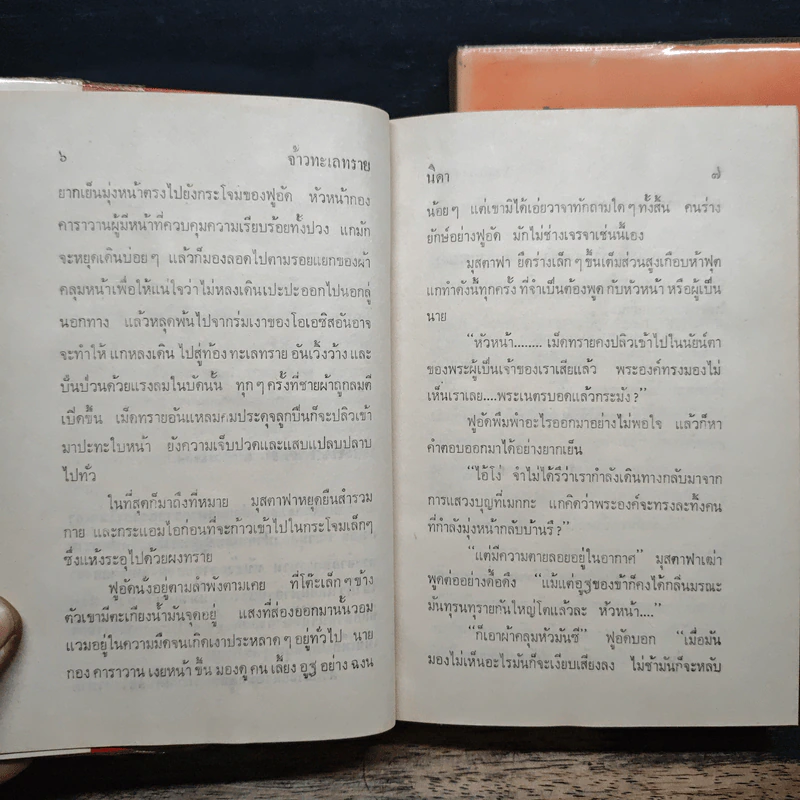 ๖ จ้าวทะเลทราย
ยากเย็นมุ่งหน้าตรงไปยังกระโจมของฟูอัด หัวหน้ากอง
คาราวานผู้มีหน้าที่ควบคุมความเรียบร้อยทั้งปวง แกมัก
จะหยุดเดินบ่อยๆ แล้วก็มองลอดไปตามรอยแยกของผ้า
คลุมหน้าเพื่อให้แน่ใจว่าไม่หลงเดินเปะปะออกไปนอกลู่
นอกทาง แล้วหลุดพ้นไปจากร่มเงาของโอเอซิสอันอาจ
จะทำให้ แกหลงเดิน ไปสู่ท้อง ทะเลทราย อันเวิ้งว้าง และ
ปั่นป่วนด้วยแรงลมในบัดนั้น ทุกๆ ครั้งที่ชายผ้าถูกลมตี
เปิดขึ้น เม็ดทรายอันแหลมคมประดุจลูกปืนก็จะปลิวเข้า
มาปะทะใบหน้า ยังความเจ็บปวดและแสบแปลบปลาบ
ไปทั่ว
ในที่สุดก็มาถึงที่หมาย มุสตาฟาหยุดยืนสำรวม
กาย และกระแอมไอก่อนที่จะก้าวเข้าไปในกระโจมเล็กๆ
ซึ่งแห้งระอุไปด้วยผงทราย
ฟูอัดนั่งอยู่ตามลำพังตามเคย ที่โต๊ะเล็ก ๆ ข้าง
ตัวเขามีตะเกียงน้ำมันจุดอยู่ แสงที่ส่องออกมานั้นวอม
แวมอยู่ในความมืดจนเกิดเงาประหลาด ๆ อยู่ทั่วไป นาย
กอง คาราวาน เงยหน้า ขึ้น มองดู คน เลี้ยง อูฐ อย่าง ฉงน
นิดา ๗
น้อยๆ แต่เขามิได้เอ่ยวาจาทักถามใด ๆ ทั้งสิ้น คนร่าง
ยักษ์อย่างฟูอัด มักไม่ช่างเจรจาเช่นนี้เอง
มุสตาฟา ยืดร่างเล็ก ๆ ขึ้นเต็มส่วนสูงเกือบห้าฟุต
แกทำดังนี้ทุกครั้ง ที่จำเป็นต้องพูด กับหัวหน้า หรือผู้เป็น
นาย
“หัวหน้า........ เม็ดทรายคงปลิวเข้าไปในนัยน์ตา
ของพระผู้เป็นเจ้าของเราเสียแล้ว พระองค์ทรงมองไม่
เห็นเราเลย....พระเนตรบอดแล้วกระมัง ?”
ฟูอัดพึมพำอะไรออกมาอย่างไม่พอใจ แล้วก็หา
คำตอบออกมาได้อย่างยากเย็น
“ไอ้โง่ จำไม่ได้รึว่าเรากำลังเดินทางกลับมาจาก
การแสวงบุญที่เมกกะ แกคิดว่าพระองค์จะทรงละทิ้งคน
ที่กำลังมุ่งหน้ากลับบ้านรึ ?”
“แต่มีความตายลอยอยู่ในอากาศ” มุสตาฟาเฒ่า
พูดต่ออย่างดื้อดึง “แม้แต่อูฐของข้าก็คงได้กลิ่นมรณะ
มันทุรนทุรายกันใหญ่โตแล้วละ หัวหน้า....”
“ก็เอาผ้าคลุมหัวมันซี” ฟูอัดบอก “เมื่อมัน
มองไม่เห็นอะไรมันก็จะเงียบเสียงลง ไม่ช้ามันก็จะหลับ